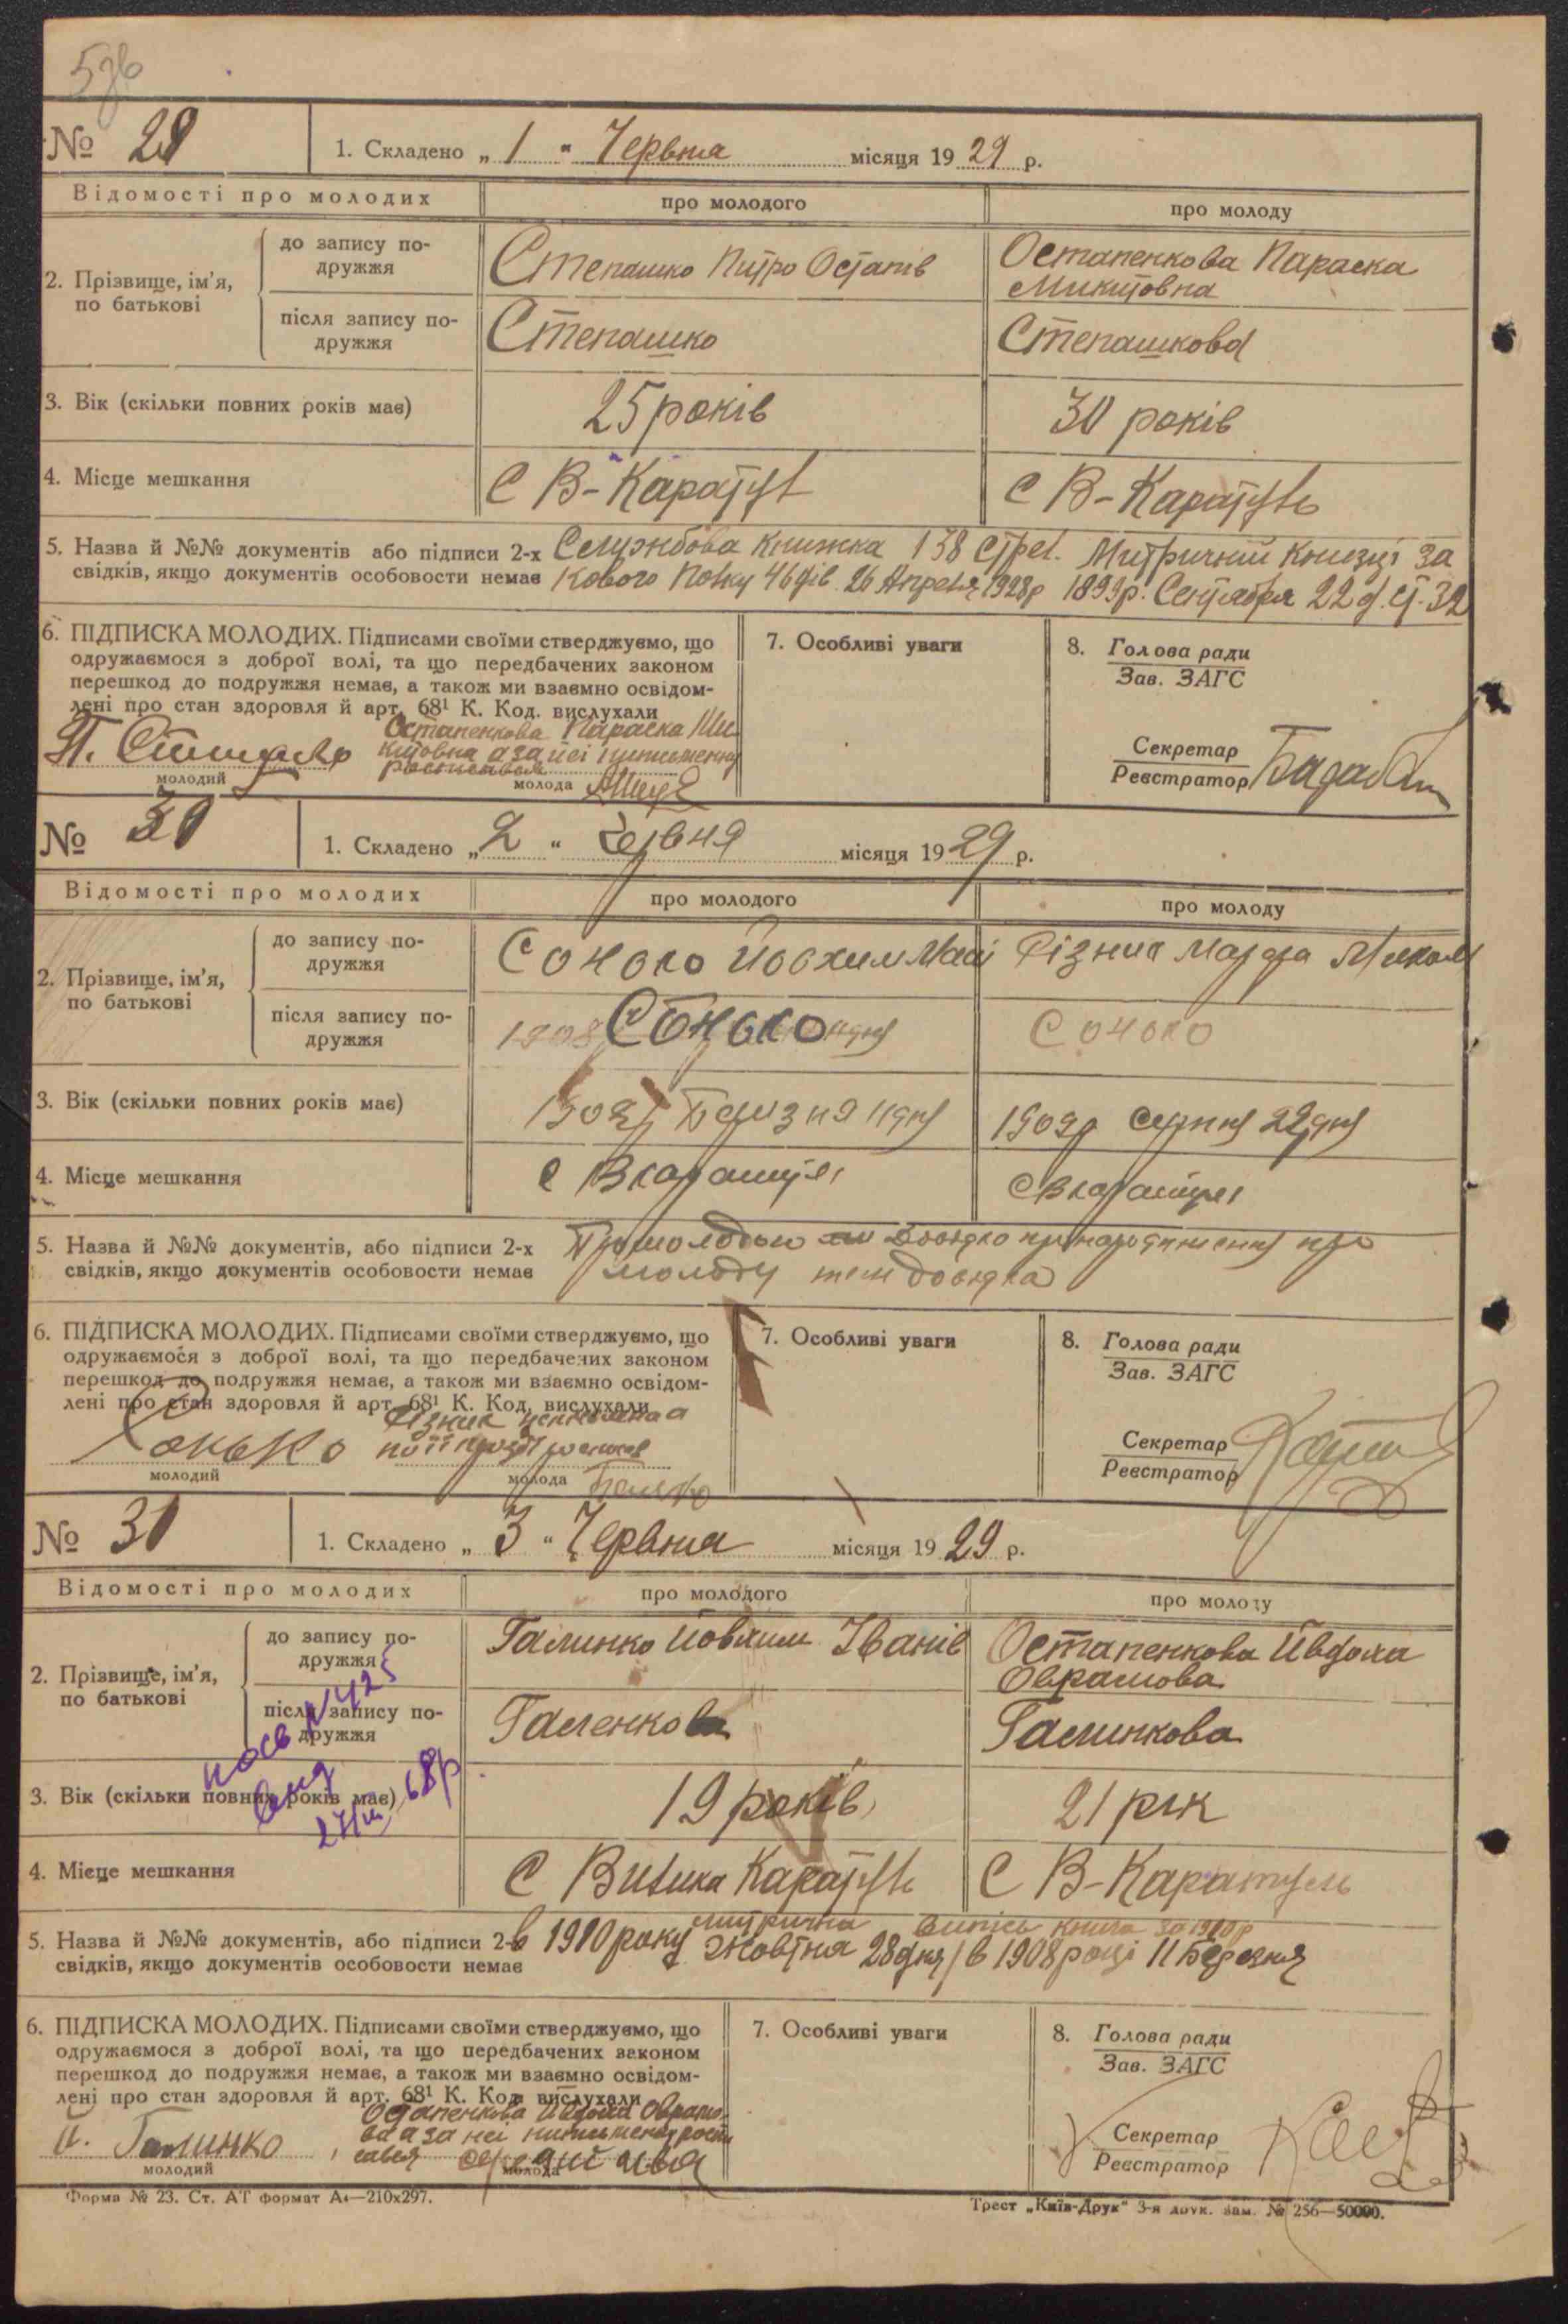 № 29 1. Складено „ 1 “ Червня місяця 1929 р.
Відомості про молодих про молодого про молоду
2. Прізвище, ім'я, по батькові
до запису подружжя Степашко Питро Остапів Остапенкова Параска Микитовна
після запису подружжя Степашко Степашкова
3. Вік (скільки повних років має) 25 років 30 років
4. Місце мешкання С В-Каратуль С В-Каратуль
5. Назва й №№ документів або підписи 2-х Службова Книжка 138 Стрел. Митричний Книзці за
свідків, якщо документів особовости немає Кового Полку 46 див. 26 Апреля 1928р 1899р. Сентября 22 д. ст. 32
6. ПІДПИСКА МОЛОДИХ. Підписами своїми стверджуємо, що
одружаємося з доброї волі, та що передбачених законом
перешкод до подружжя немає, а також ми взаємно освідом-
лені про стан здоровля й арт. 68¹ К. Код. вислухали
Остапенкова Параска Ми
китовна а за неї
молодий молода
7. Особливі уваги
8. Голова ради
Зав. ЗАГС
Секретар
Реєстратор
№ 30 1. Складено „ 2 “ Червня місяця 1929 р.
Відомості про молодих про молодого про молоду
2. Прізвище, ім'я, по батькові
до запису подружжя Сонько Різник
після запису подружжя Сонько Сонько
3. Вік (скільки повних років має) Березня 11 дня 1909р Серпня 22 дня
4. Місце мешкання с В Каратуля с В Каратуля
5. Назва й №№ документів, або підписи 2-х
свідків, якщо документів особовости немає молоду теж довідка
6. ПІДПИСКА МОЛОДИХ. Підписами своїми стверджуємо, що
одружаємося з доброї волі, та що передбачених законом
перешкод до подружжя немає, а також ми взаємно освідом-
лені про стан здоровля й арт. 68¹ К. Код. вислухали
Сонько
молодий молода
7. Особливі уваги
8. Голова ради
Зав. ЗАГС
Секретар
Реєстратор
№ 31 1. Складено „ 3 “ Червня місяця 1929 р.
Відомості про молодих про молодого про молоду
2. Прізвище, ім'я, по батькові
до запису подружжя Галинко Йовхим Іванів Остапенкова Ивдоха Оврамова
після запису подружжя Галенко Галинкова
3. Вік (скільки повних років має) 19 років 21 рік
4. Місце мешкання С Вилика Каратуль С В-Каратуль
68р
5. Назва й №№ документів, або підписи 2-х в 1910 року митрична випись книга за 1910р
свідків, якщо документів особовости немає Жовтня 28 дня / в 1908 році 11 Березня
6. ПІДПИСКА МОЛОДИХ. Підписами своїми стверджуємо, що
одружаємося з доброї волі, та що передбачених законом
перешкод до подружжя немає, а також ми взаємно освідом-
лені про стан здоровля й арт. 68¹ К. Код. вислухали
Остапенкова Ивдоха Оврамо-
ва а за неї
Й. Галинко
молодий молода
7. Особливі уваги
8. Голова ради
Зав. ЗАГС
Секретар
Реєстратор
Форма № 23. Ст. АТ формат А4—210х297. Трест „Київ-Друк“ 3-я друк. Зам. № 256—50000.